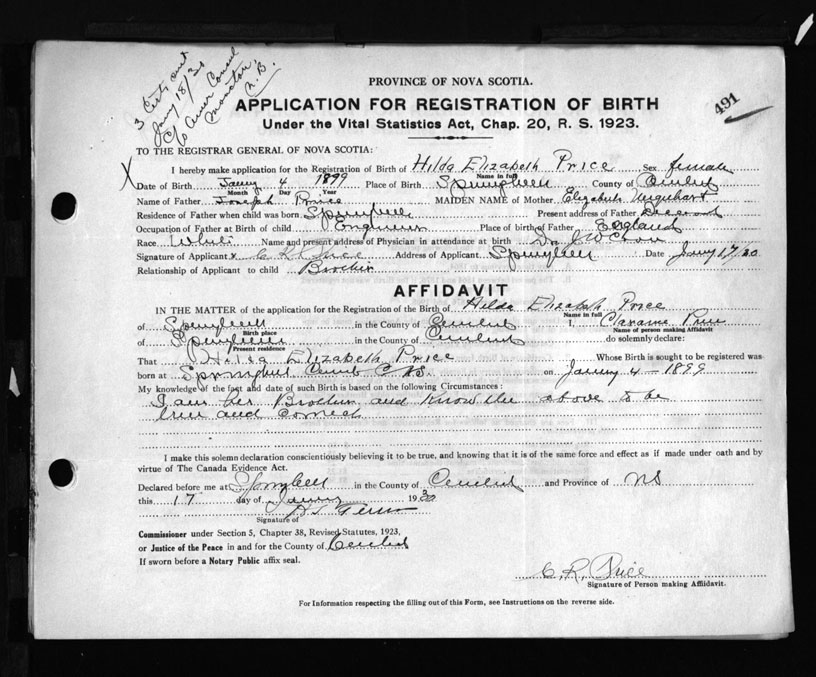 3 Certs out
Jany 18/30
c/o Amer Consul
Moncton,
N.B.
491
PROVINCE OF NOVA SCOTIA.
APPLICATION FOR REGISTRATION OF BIRTH
Under the Vital Statistics Act, Chap. 20, R. S. 1923.
TO THE REGISTRAR GENERAL OF NOVA SCOTIA:
X
I hereby make application for the Registration of Birth of Hilda Elizabeth Price Sex female
Name in full
Date of Birth Janny 4 1899 Place of Birth Springhill County of Cumberland
Month Day Year
Name of Father Joseph Price MAIDEN NAME of Mother Elizabeth Urquhart
Residence of Father when child was born Springhill Present address of Father Deceased
Occupation of Father at Birth of child Engineer Place of birth of Father England
Race White Name and present address of Physician in attendance at birth Dr J W
Signature of Applicant x C R Price Address of Applicant Springhill Date Jany 17/30
Relationship of Applicant to child Brother
AFFIDAVIT
IN THE MATTER of the application for the Registration of the Birth of Hilda Elizabeth Price
Name in full
of Springhill in the County of Cumberland I, Clarance Price
Birth place Name of person making Affidavit
of Springhill in the County of Cumberland do solemnly declare:
Present residence
That Hilda Elizabeth Price Whose Birth is sought to be registered was
born at Springhill Cumb Co NS on January 4 - 1899
My knowledge of the fact and date of such Birth is based on the following Circumstances:
I am her Brother and Know the above to be
true and Correct
I make this solemn declaration conscientiously believing it to be true, and knowing that it is of the same force and effect as if made under oath and by
virtue of The Canada Evidence Act.
Declared before me at Springhill in the County of Cumberland and Province of NS
this 17 day of January 1930
Signature of
Commissioner under Section 5, Chapter 38, Revised Statutes, 1923,
or Justice of the Peace in and for the County of Cumberland
If sworn before a Notary Public affix seal.
C. R. Price
Signature of Person making Affidavit.
For Information respecting the filling out of this Form, see Instructions on the reverse side.